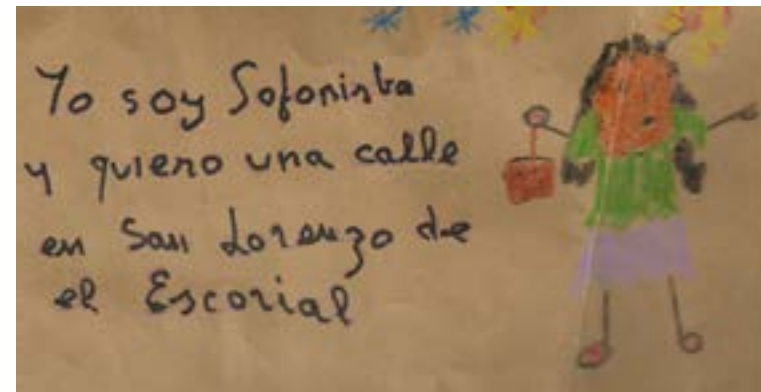 Yo soy Sofonisba
y quiero una calle
en San Lorenzo de
el Escorial